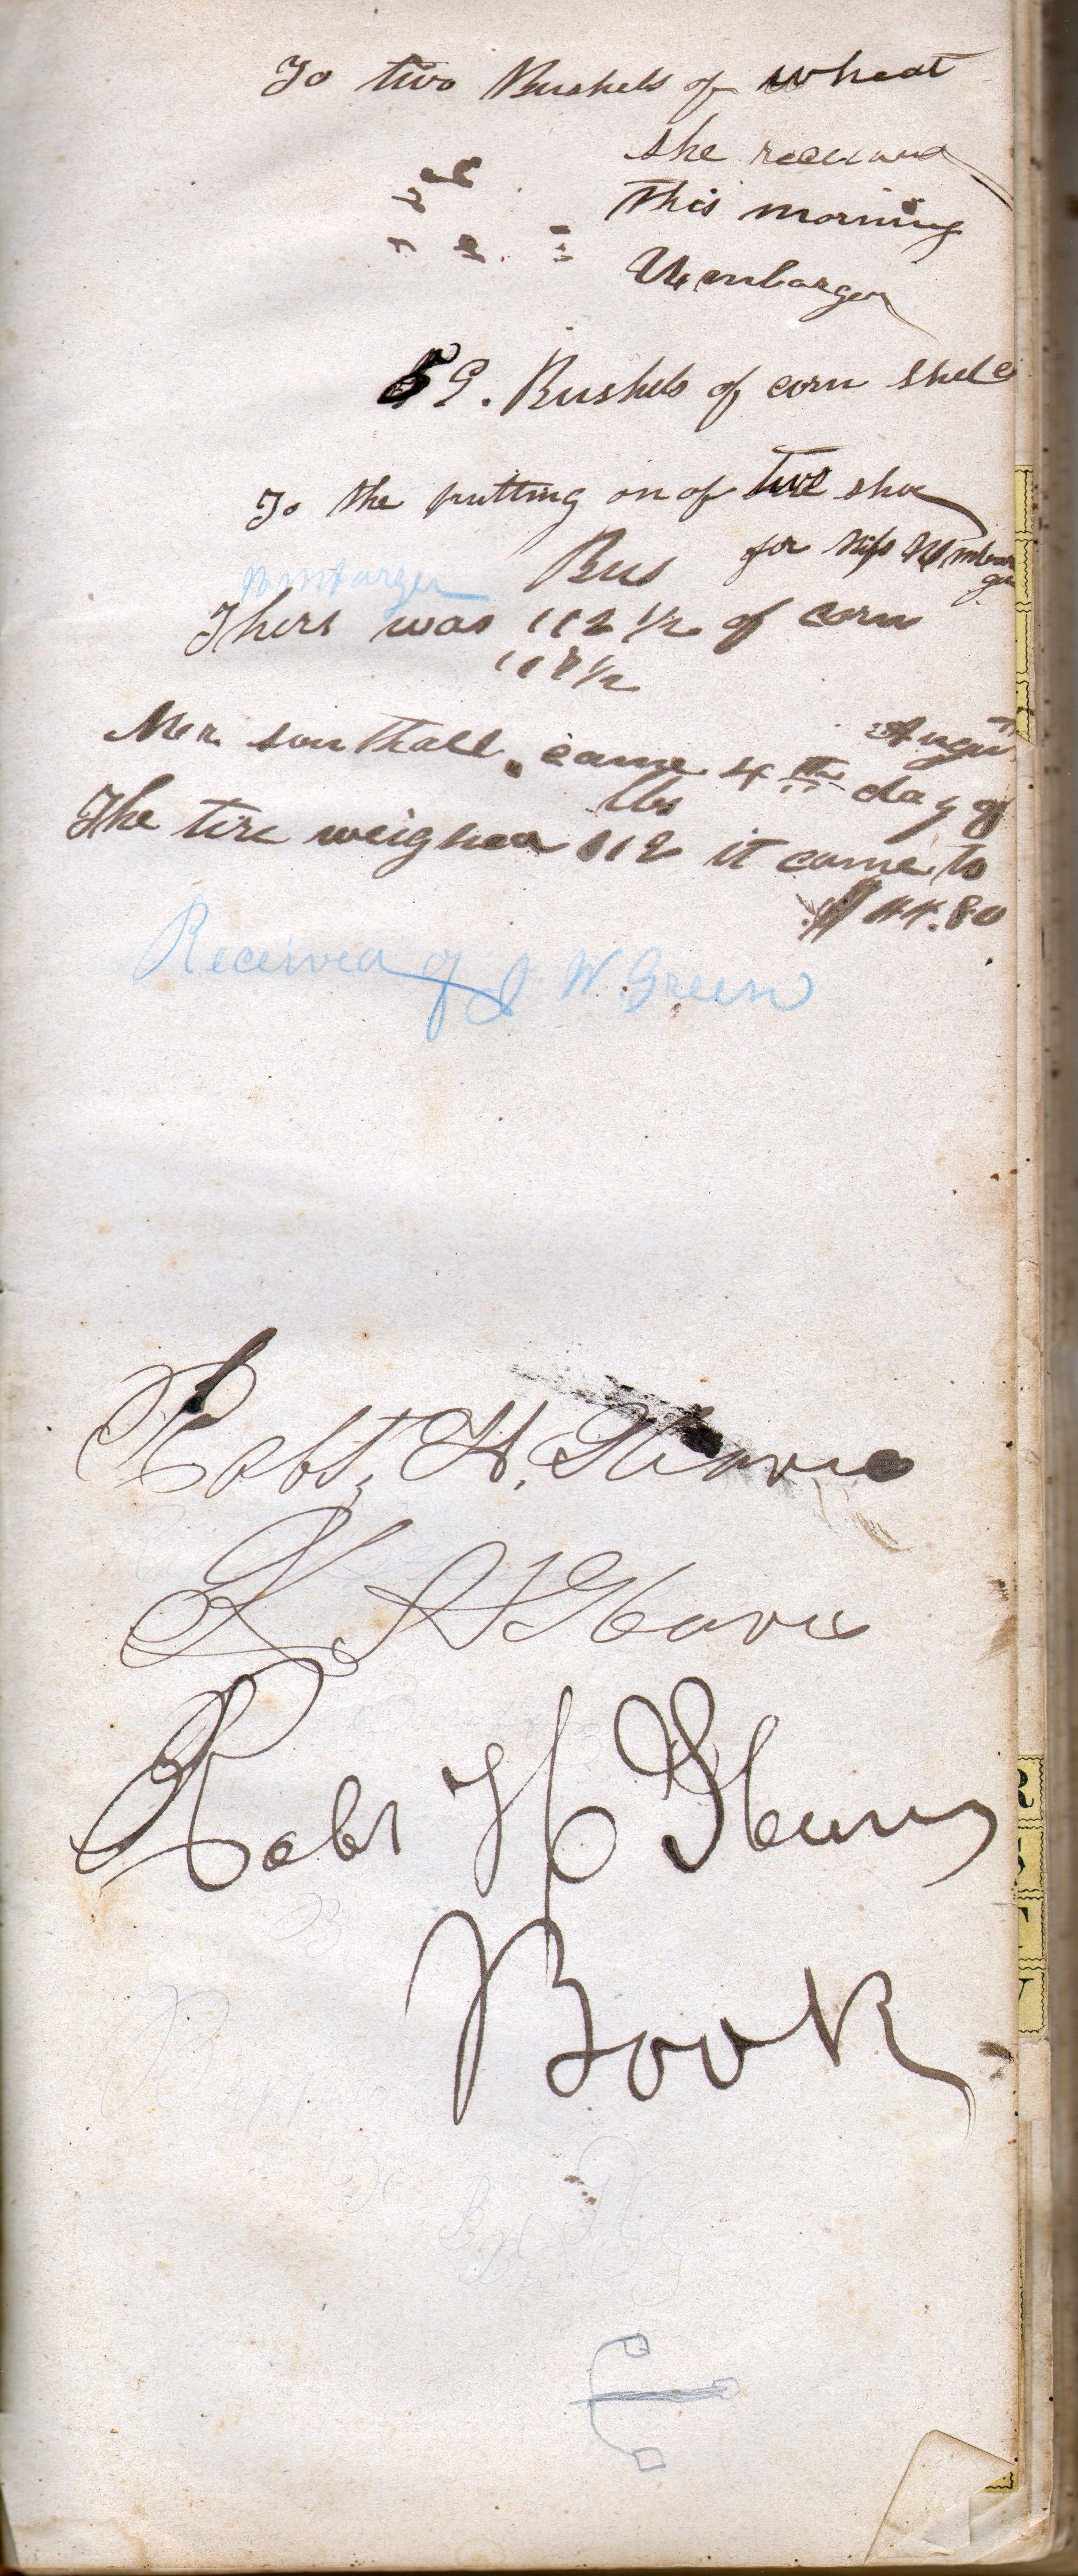 To two Bushels of wheat
she received
this morning
Umbarger
59. Bushels of corn
To the putting on of two shoe
for Miss Umbarger
Umbarger
Bus
Thers was 112 1/2 of corn
118 1/2
Augu
Mer. southall. came 4th day of
lbs
The tire weighed 112 it came to
$44.80
Received of J W. Green
Robt. H.
R H
Robt H
Book